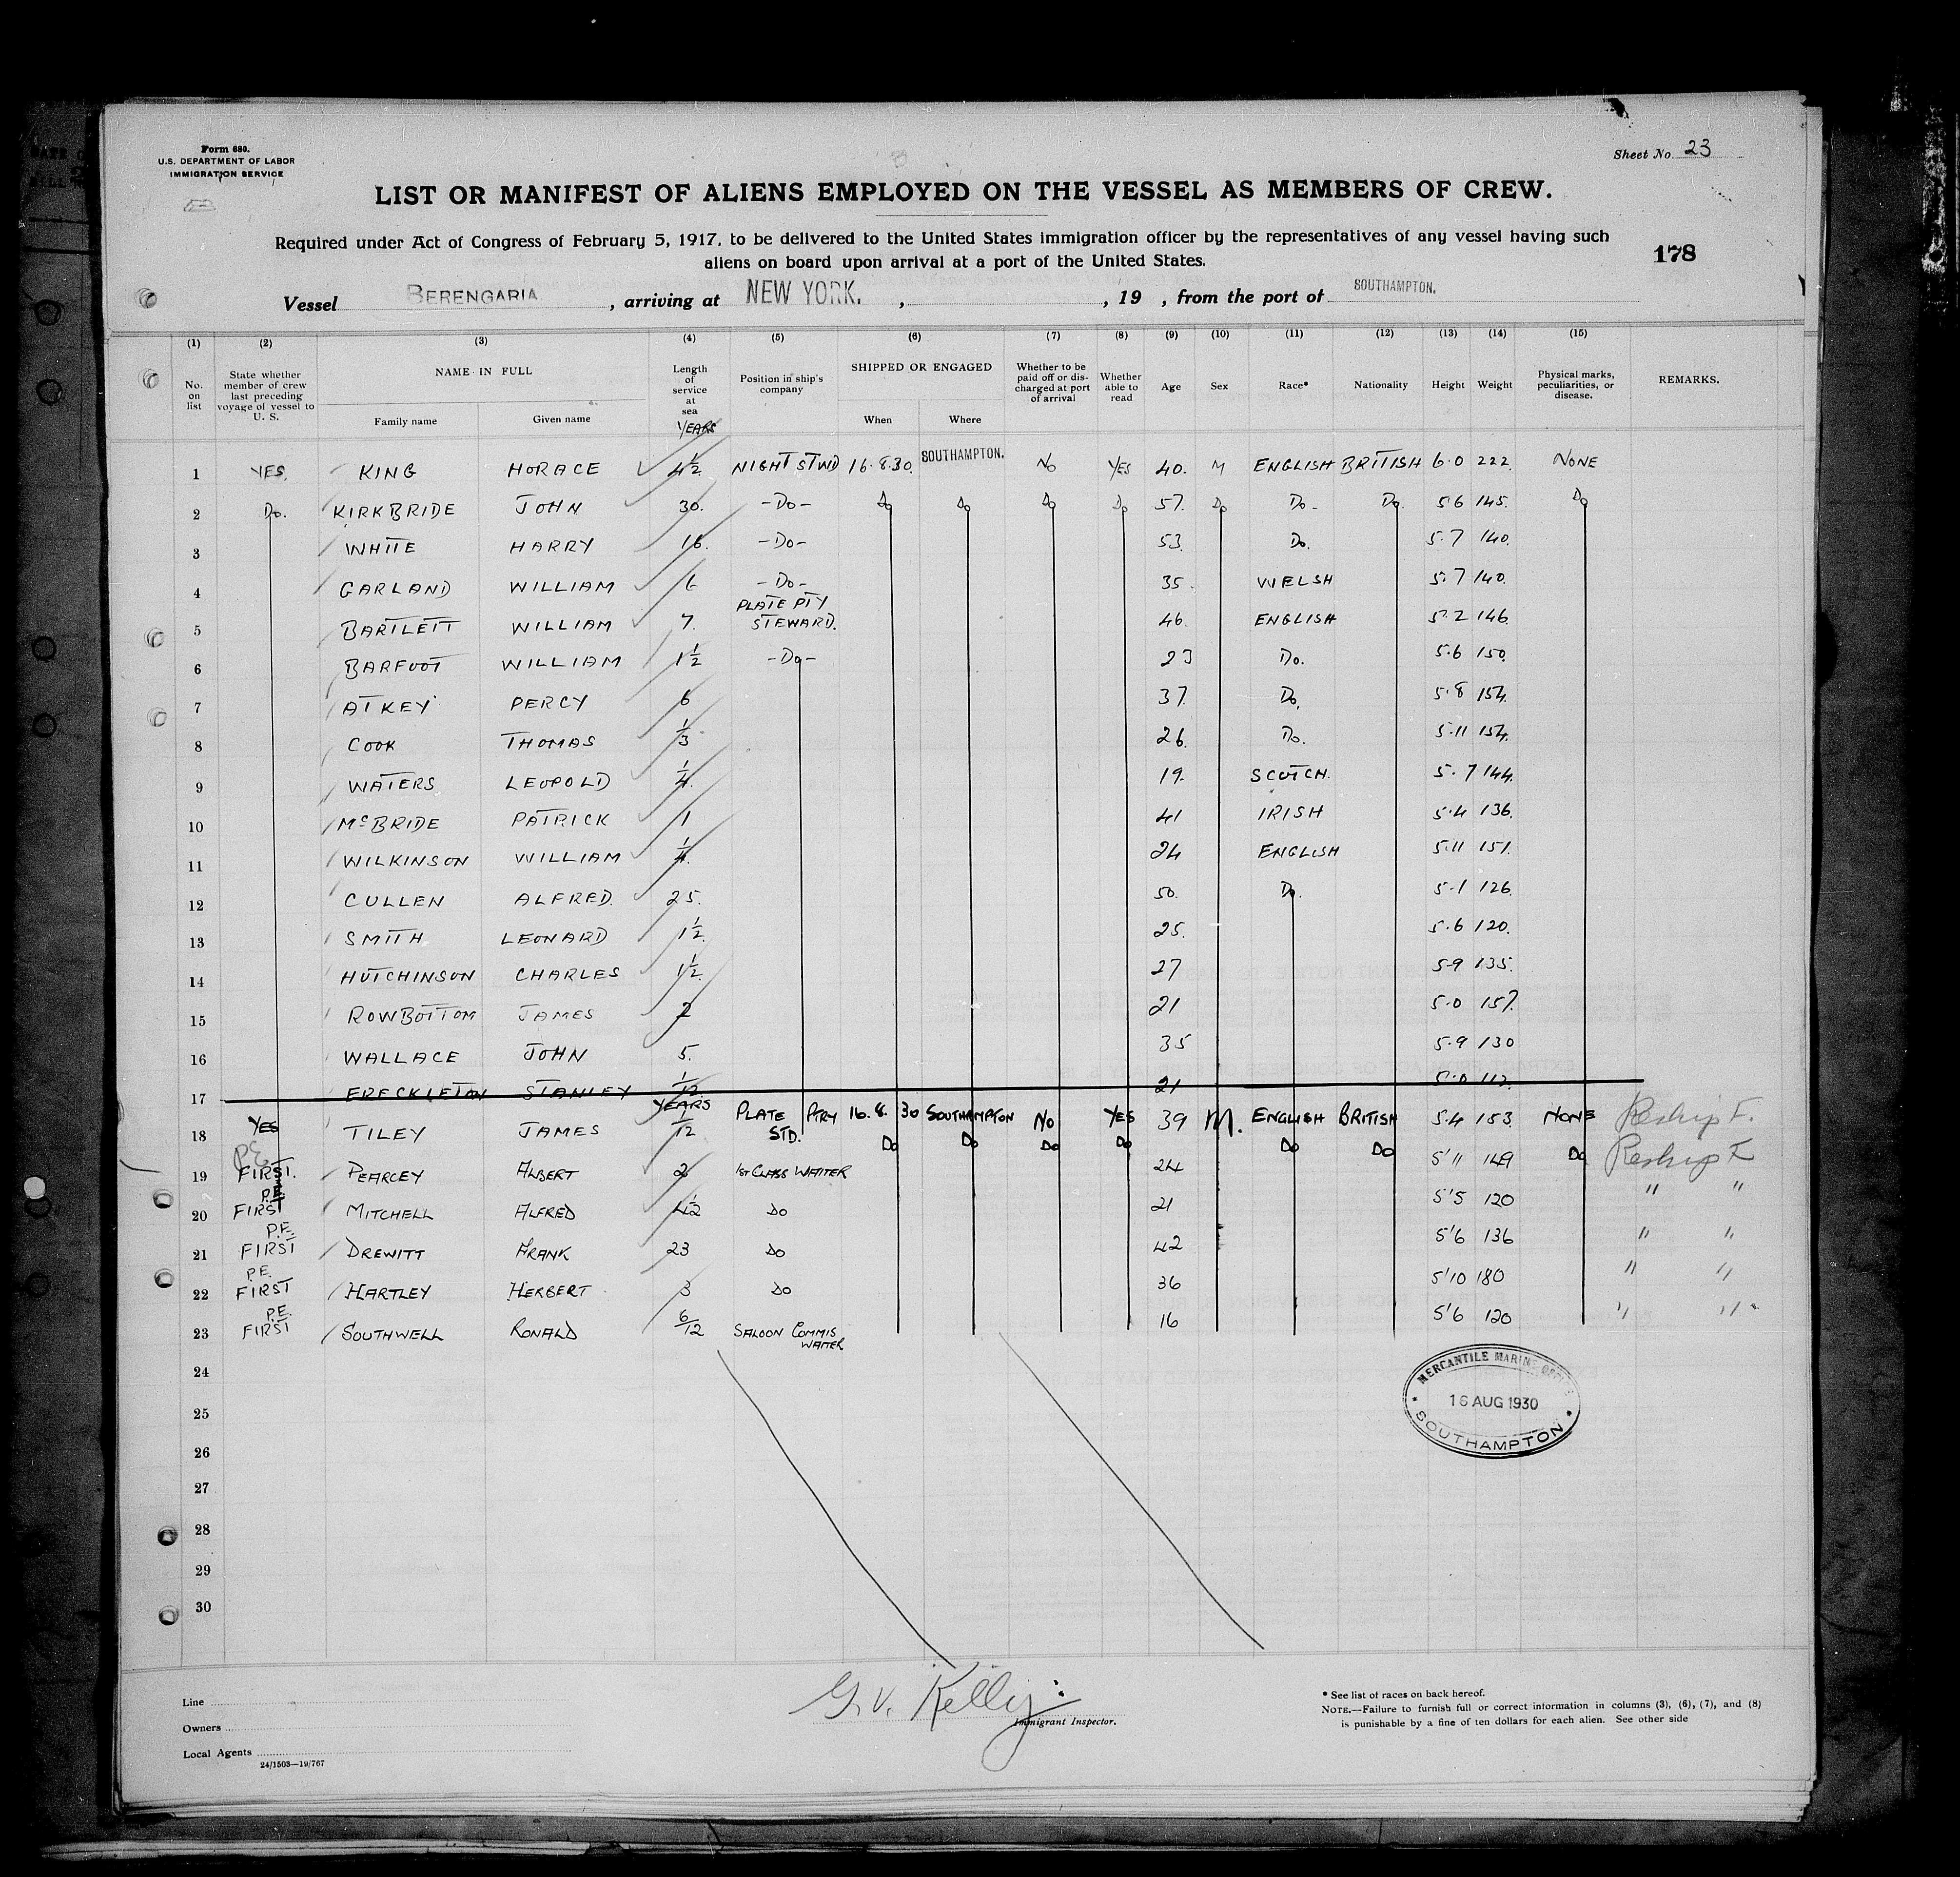 Form 680.
U.S. DEPARTMENT OF LABOR
IMMIGRATION SERVICE
Sheet No. 23
LIST OR MANIFEST OF ALIENS EMPLOYED ON THE VESSEL AS MEMBERS OF CREW.
Required under Act of Congress of February 5, 1917, to be delivered to the United States immigration officer by the representatives of any vessel having such
aliens on board upon arrival at a port of the United States.
178
Vessel BERENGARIA, arriving at NEW YORK. , , 19 , from the port of SOUTHAMPTON.
(1) (2) (3) (4) (5) (6) (7) (8) (9) (10) (11) (12) (13) (14) (15)
No. on list State whether member of crew last preceding voyage of vessel to U. S. NAME IN FULL Family name Given name Length of service at sea YEARS Position in ship's company SHIPPED OR ENGAGED When Where Whether to be paid off or discharged at port of arrival Whether able to read Age Sex Race* Nationality Height Weight Physical marks, peculiarities, or disease. REMARKS.
1 YES. KING HORACE 4½ NIGHT STWD 16.8.30. SOUTHAMPTON. NO YES 40. M ENGLISH BRITISH 6.0 222. NONE
2 Do. KIRKBRIDE JOHN 30. -Do- Do Do Do Do 57. Do Do. Do. 5.6 145. Do
3 WHITE HARRY 16. -Do- 53. Do. 5.7 140.
4 GARLAND WILLIAM -Do- 35. WELSH 5.7 140.
5 BARTLETT WILLIAM 7. PLATE PTY STEWARD. 46. ENGLISH 5.2 146.
6 BARFOOT WILLIAM 1½ -Do- 23 Do. 5.6 150.
7 ATKEY PERCY 6 37. Do. 5.8 154.
8 COOK THOMAS 1/3 26. Do. 5.11 154.
9 WATERS LEOPOLD 1/4. 19. SCOTCH. 5.7 144.
10 McBRIDE PATRICK 1 41 IRISH 5.4 136.
11 WILKINSON WILLIAM 1/4. 24 ENGLISH 5.11 151.
12 CULLEN ALFRED. 25. 50. Do. 5.1 126.
13 SMITH LEONARD 1½. 25. 5.6 120.
14 HUTCHINSON CHARLES 1½. 27 5.9 135.
15 ROWBOTTOM JAMES 2 21 5.0 157.
16 WALLACE JOHN 5. 35 5.9 130
17 FRECKLETON STANLEY 1/12 21 5.0 112.
18 YES TILEY JAMES YEARS 1/12 PLATE PTRY STD. 16.8.30 SOUTHAMPTON NO YES 39 M. ENGLISH BRITISH 5.4 153. NONE Reship F.
19 P.E. FIRST. PEARCEY ALBERT 2 1st CLASS WAITER Do Do Do Do 24 Do Do 5'11 149 Do Reship F
20 P.E. FIRST MITCHELL ALFRED 4½ DO 21 5'5 120 " "
21 P.E. FIRST DREWITT FRANK 23 DO 42 5'6 136 " "
22 P.E. FIRST HARTLEY HERBERT 3 DO 36 5'10 180 " "
23 P.E. FIRST SOUTHWELL RONALD 6/12 SALOON COMMIS WAITER 16 5'6 120 " "
24
25
26
27
28
29
30
MERCANTILE MARINE OFFICE
16 AUG 1930
SOUTHAMPTON
Line
Owners
Local Agents
24/1503—19/767
G. V. Kelly
Immigrant Inspector.
* See list of races on back hereof.
NOTE.—Failure to furnish full or correct information in columns (3), (6), (7), and (8)
is punishable by a fine of ten dollars for each alien. See other side